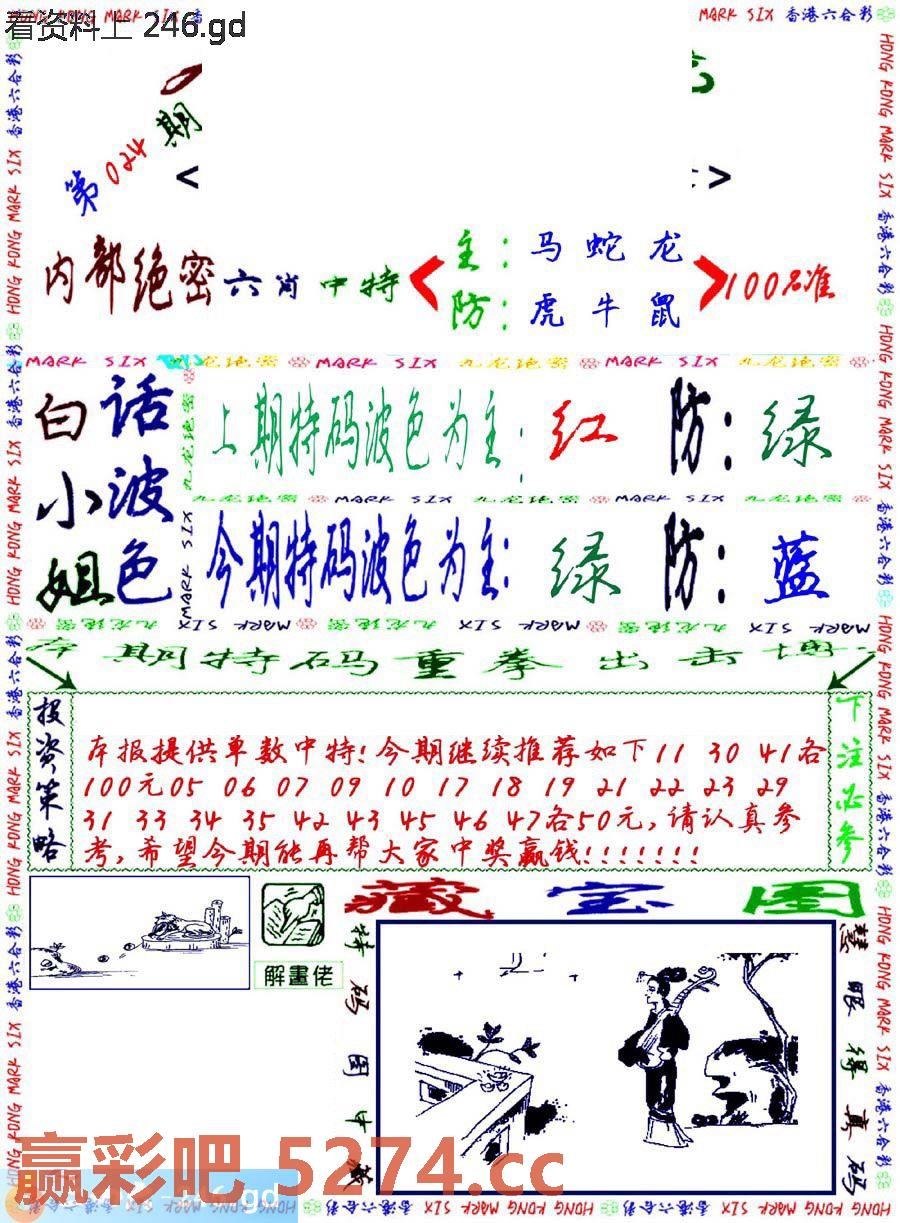 看资料上 246.gd
MARK SIX 香港六合彩
第024期
< >
内部绝密六肖中特
主：马蛇龙
防：虎牛鼠
100%准
MARK SIX 九龙绝密 MARK SIX 九龙绝密 MARK SIX 九龙绝密
白小姐
话波色
上期特码波色为主：红 防：绿
九龙绝密 MARK SIX 九龙绝密 MARK SIX 九龙绝密
今期特码波色为主：绿 防：蓝
九龙绝密 MARK SIX 九龙绝密 MARK SIX 九龙绝密 MARK SIX
期特码重拳出击
投资策略
本报提供单数中特！今期继续推荐如下11 30 41各
100元05 06 07 09 10 17 18 19 21 22 23 29
31 33 34 35 42 43 45 46 47各50元，请认真参
考，希望今期能再帮大家中奖赢钱！！！！！！！
下注必参
解畫佬
藏宝图
特码图中藏
慧眼得真码
赢彩吧 5274.cc
HONG KONG MARK SIX 香港六合彩